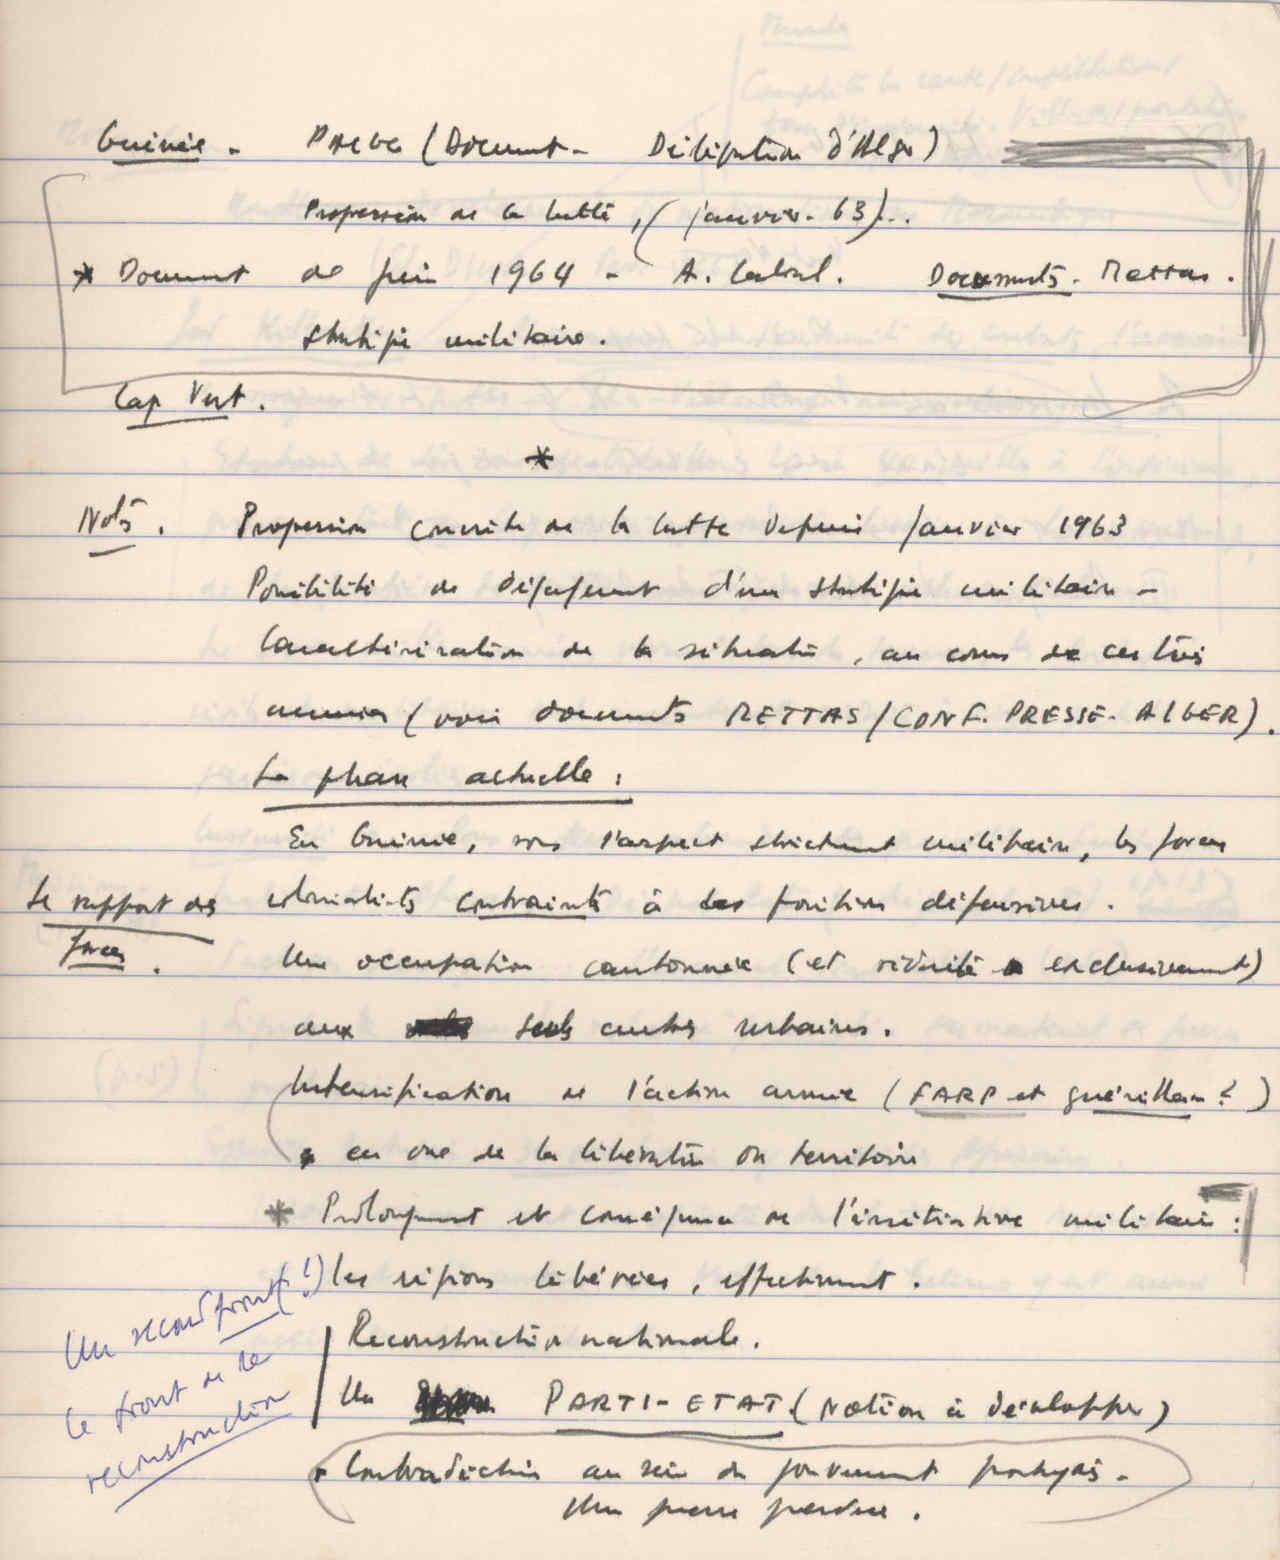 Guinée - PAIGC (Document - Délégation d'Alger)
Progression de la lutte, (janvier - 63)...
* Document de juin 1964 - A. Cabral. Documents - Mettas.
stratégie militaire.
Cap Vert.
*
Notes. Progression concrète de la lutte depuis janvier 1963
Possibilité de dégagement d'une stratégie militaire -
Caractérisation de la situation, au cours de ces trois
années (voir documents METTAS/CONF. PRESSE - ALGER).
La phase actuelle :
En Guinée, sous l'aspect strictement militaire, les forces
Le rapport des colonialistes contraintes à des positions défensives.
forces. Une occupation cantonnée (et réduite exclusivement)
aux seuls centres urbains.
Intensification de l'action armée (FARP et guérilla ?)
en vue de la libération du territoire
* Prolongement et conséquence de l'initiative militaire :
les régions libérées, effectivement.
Un second front (!)
le front de la
reconstruction
Reconstruction nationale.
Un PARTI-ETAT (Notion à développer)
Contradiction au sein du gouvernement portugais -
Une guerre perdue.